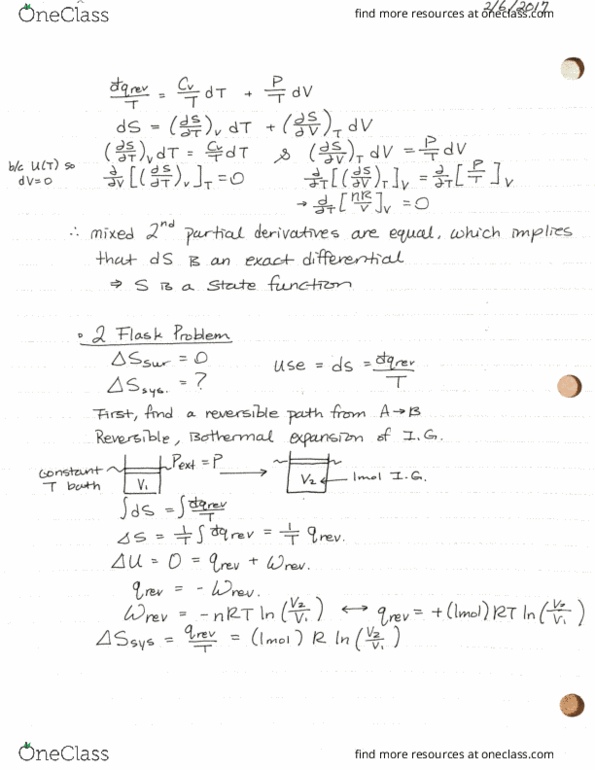 OneClass
find more resources at oneclass.com
2/6/2017
đq_rev/T = Cv/T dT + P/T dV
dS = (∂S/∂T)_V dT + (∂S/∂V)_T dV
(∂S/∂T)_V dT = Cv/T dT & (∂S/∂V)_T dV = P/T dV
b/c U(T) so dV=0
∂/∂V [(∂S/∂T)_V]_T = 0 ∂/∂T [(∂S/∂V)_T]_V = ∂/∂T [P/T]_V
→ ∂/∂T [nR/V]_V = 0
∴ mixed 2nd partial derivatives are equal, which implies
that dS is an exact differential
⇒ S is a state function
• 2 Flask Problem
ΔS_sur = 0
use = ds = đq_rev/T
ΔS_sys. = ?
First, find a reversible path from A→B
Reversible, Isothermal expansion of I.G.
constant T bath
Pext = P
V1
V2 ← 1mol I.G.
∫dS = ∫đq_rev/T
ΔS = 1/T ∫đq_rev = 1/T q_rev.
ΔU = 0 = q_rev + ω_rev.
q_rev = - ω_rev.
ω_rev = -nRT ln(V2/V1) ↔ q_rev = +(1mol) RT ln(V2/V1)
ΔS_sys = q_rev/T = (1mol) R ln(V2/V1)
OneClass
find more resources at oneclass.com